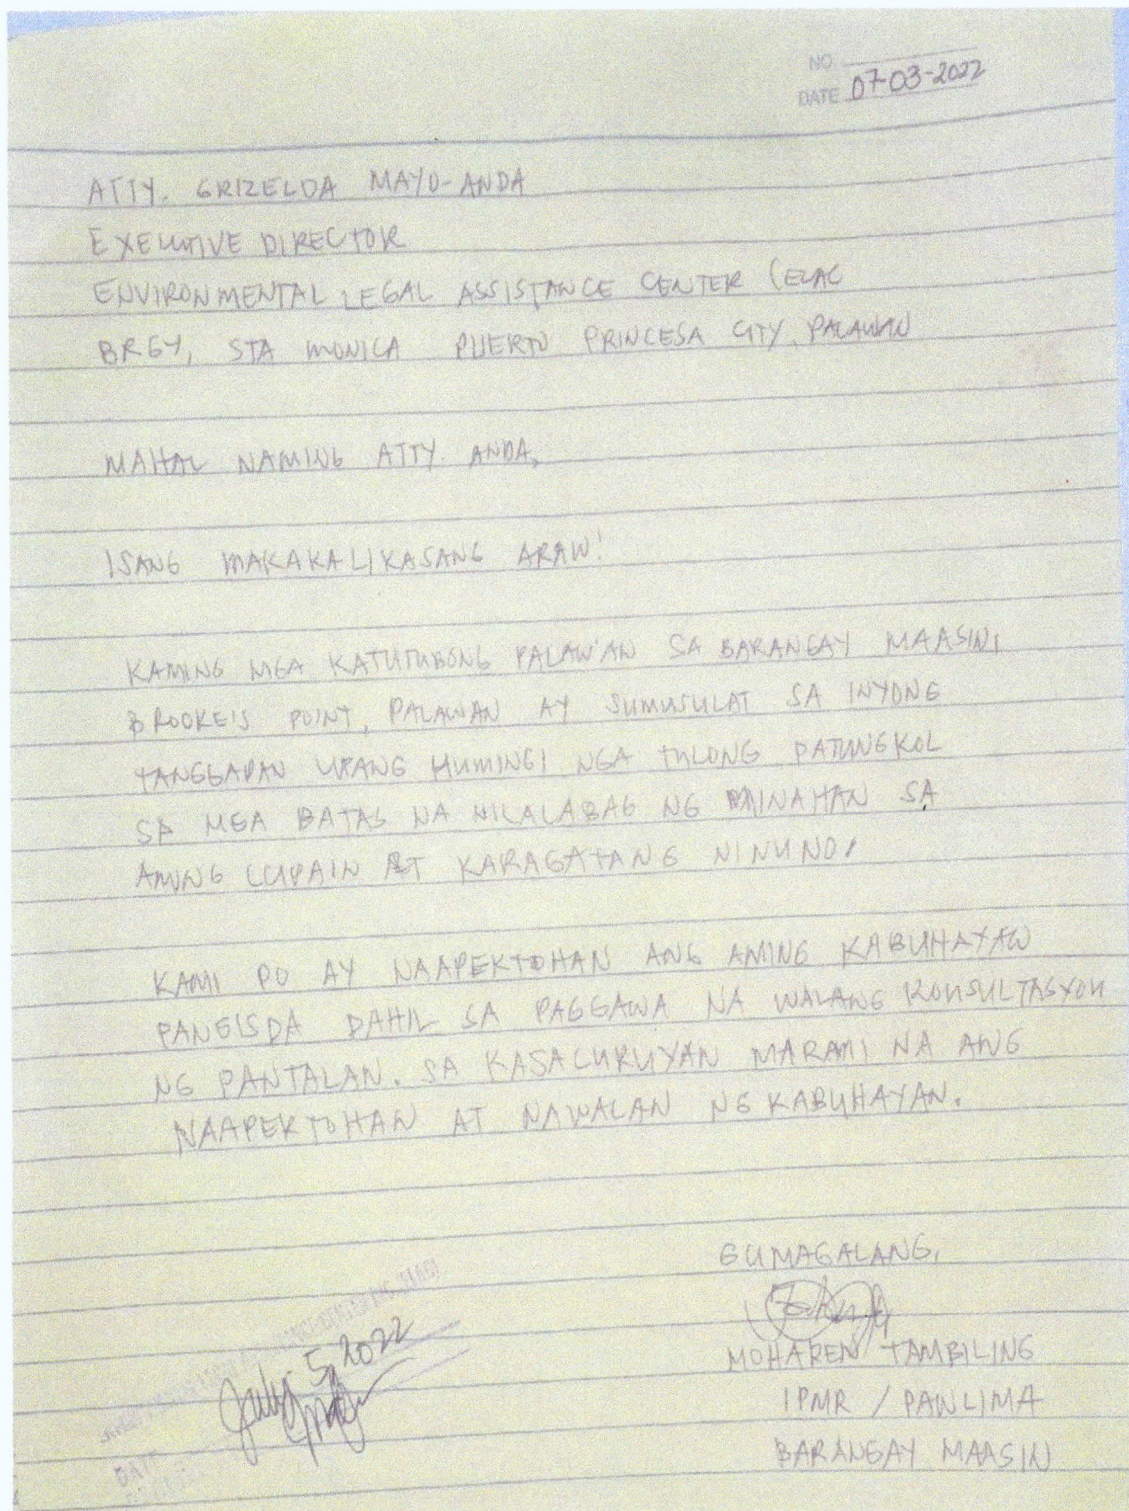 NO.
DATE 07-03-2022
ATTY. GRIZELDA MAYO-ANDA
EXECUTIVE DIRECTOR
ENVIRONMENTAL LEGAL ASSISTANCE CENTER (ELAC
BRGY, STA MONICA PUERTO PRINCESA CITY, PALAWAN
MAHAL NAMING ATTY. ANDA,
ISANG MAKAKALIKASANG ARAW!
KAMING MGA KATUTUBONG PALAW'AN SA BARANGAY MAASIN,
BROOKE'S POINT, PALAWAN AY SUMUSULAT SA INYONG
TANGGAPAN UPANG HUMINGI NGA TULONG PATUNGKOL
SA MGA BATAS NA NILALABAG NG MINAHAN SA
AMING LUPAIN AT KARAGATANG NINUNO.
KAMI PO AY NAAPEKTOHAN ANG AMING KABUHAYAN
PANGISDA DAHIL SA PAGGAWA NA WALANG KONSULTASYON
NG PANTALAN. SA KASALUKUYAN MARAMI NA ANG
NAAPEKTOHAN AT NAWALAN NG KABUHAYAN.
GUMAGALANG,
MOHAREN TAMBILING
IPMR / PANLIMA
BARANGAY MAASIN
July 5, 2022
DATE